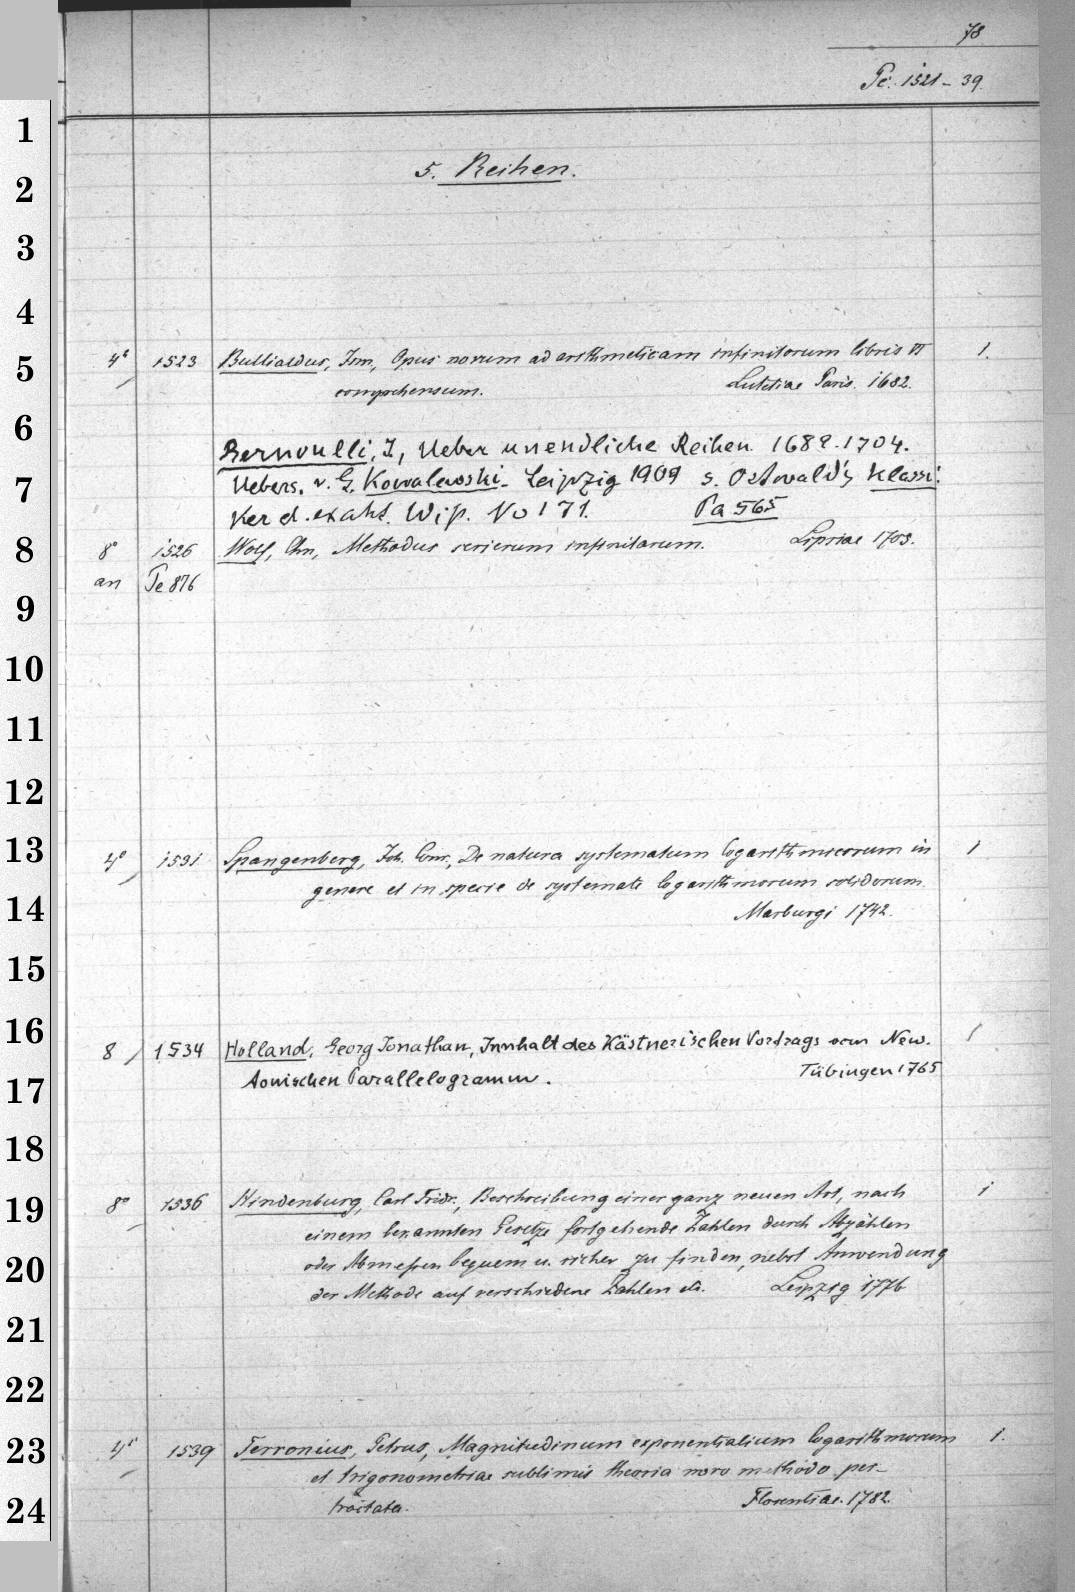 78
Pe. 1521-39.
5. Reihen.
4° 1523 Bullialdus, Ism., Opus novum ad arithmeticam infinitorum libris VI 1.
comprehensum. Lutetiae Paris. 1682.
Bernoulli, J, Ueber unendliche Reihen 1689-1704.
Uebers. v. G. Kowalewski. Leipzig 1909 s. Ostwald's Klassi:
ker d. exakt. Wiß. No 171. Pa 565
8° 1526 Wolf, Chn, Methodus serierum infinitarum. Lipsiae 1705.
an Pe 876
4° 1531 Spangenberg, Joh. Conr., De natura systematum logarithmicorum in 1
genere et in specie de systemate logarithmorum solidorum.
Marburgi 1742.
8 1534 Holland, Georg Jonathan, Innhalt des Kästnerischen Vortrags vom New. 1
tonischen Parallelogramm. Tübingen 1765
8° 1536 Hindenburg, Carl Fridr., Beschreibung einer ganz neuen Art, nach 1
einem bekannten Gesetze fortgehende Zahlen durch Abzählen
oder Abmeßen bequem u. sicher zu finden, nebst Anwendung
der Methode auf verschiedene Zahlen etc. Leipzig 1776
4° 1539 Ferronius, Petrus, Magnitudinum exponentialium logarithmorum 1.
et trigonometriae sublimis theoria nova methodo per-
tractata. Florentiae. 1782.
1
2
3
4
5
6
7
8
9
10
11
12
13
14
15
16
17
18
19
20
21
22
23
24